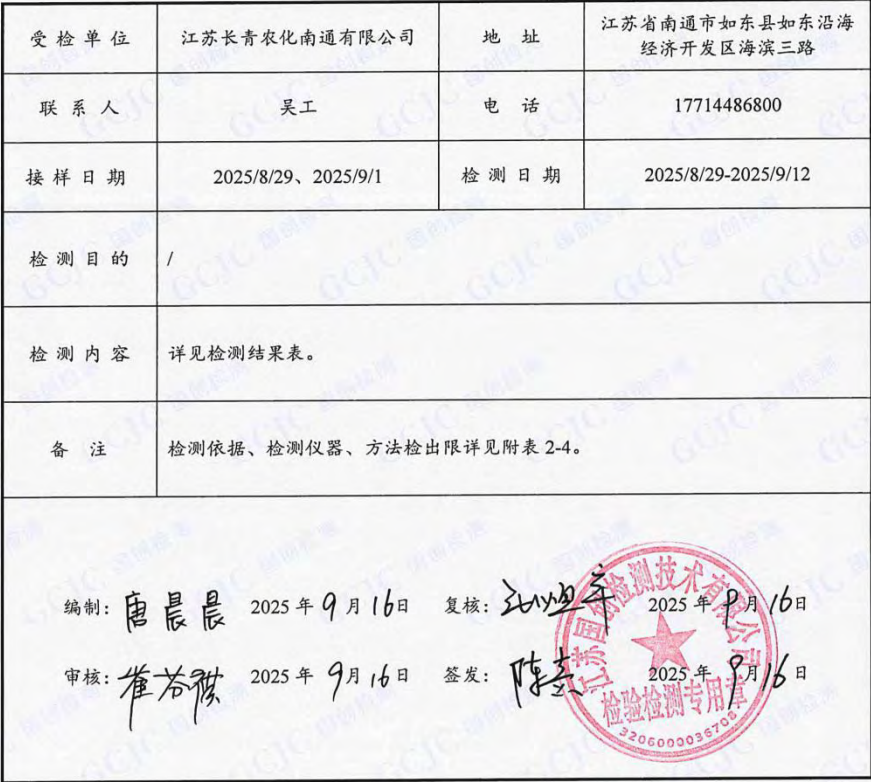 受检单位 江苏长青农化南通有限公司 地 址 江苏省南通市如东县如东沿海
经济开发区海滨三路
联系人 吴工 电 话 17714486800
接样日期 2025/8/29、2025/9/1 检测日期 2025/8/29-2025/9/12
检测目的 /
检测内容 详见检测结果表。
备 注 检测依据、检测仪器、方法检出限详见附表 2-4。
编制: 唐晨晨 2025 年 9 月 16 日 复核: 2025 年 9 月 16 日
审核: 2025 年 9 月 16 日 签发: 2025 年 9 月 16 日
江苏国创检测技术有限公司
检验检测专用章
3206000036708
GCJC 国创检测